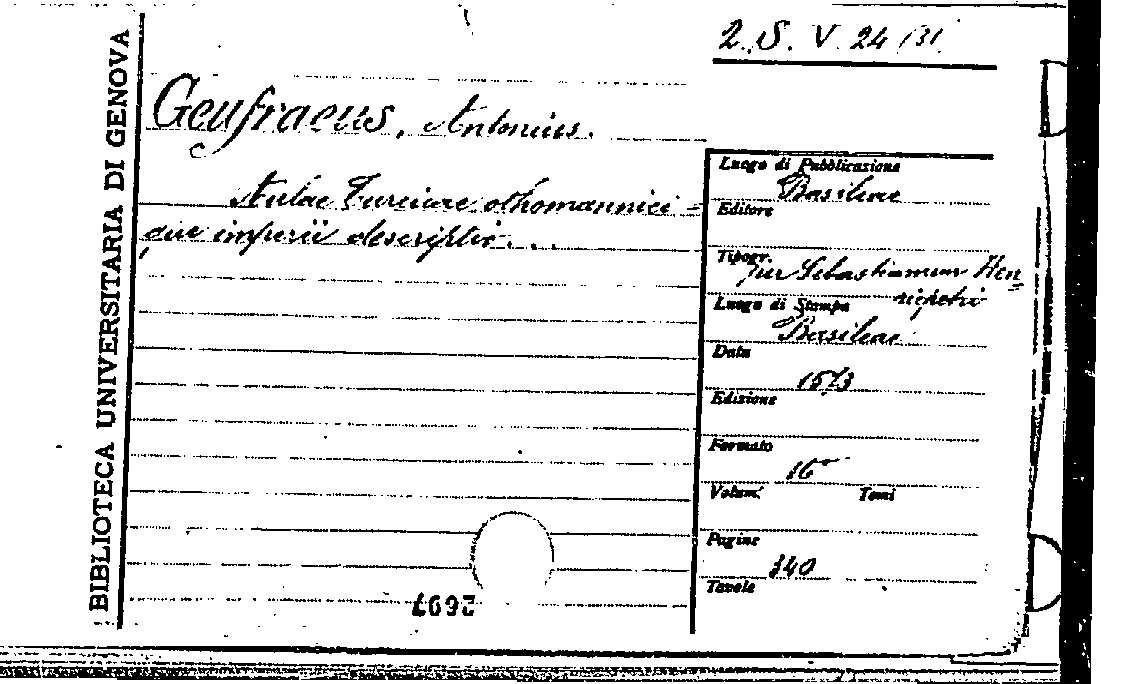 BIBLIOTECA UNIVERSITARIA DI GENOVA
2. S. V. 24 (3)
Geufraeus, Antonius.
Aulae Turcicae othomannici=
que imperii descriptio...
Luogo di Pubblicazione
Basileae
Editore
Tipogr.
per Sebastianum Hen=
ricpetri
Luogo di Stampa
Basileae
Data
1573
Edizione
Formato
16°
Volum. Tomi
Pagine
340
Tavole